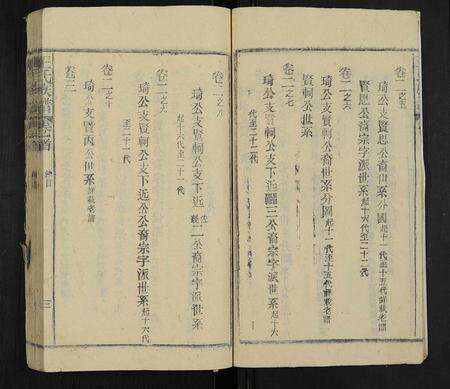 卷二之五
琦公支賢思公裔世系分圖起十一代至十五代詳載老譜
賢思公裔宗字派世系起十六代至二十二代
卷二之六
琦公支賢軻公裔世系分圖起十一代至十五代詳載老譜
賢軻公世系
卷二之七
琦公支賢軻公支下近三公裔宗字派世系起十六
代至二十一代
卷二之八
琦公支賢軻公支下近二公裔宗字派世系
起十六代至二十一代
卷二之九
琦公支賢軻公支下远公裔宗字派世系起十六代
至二十一代
卷二之十
琦公支賢丙公世系詳載老譜
卷三
氏族譜
三